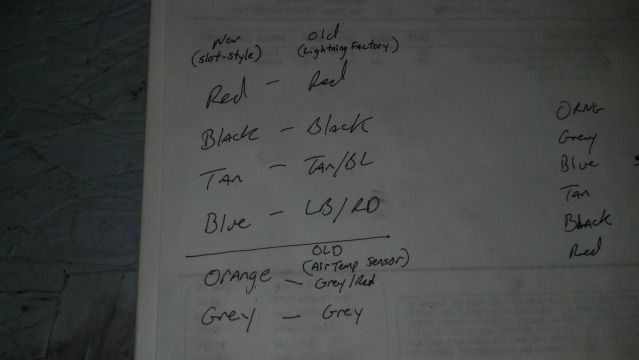 New Old
(slot-style) (Lightning Factory)
Red - Red
Black - Black
Tan - Tan/BL
Blue - LB/RD
OLD
(Air Temp Sensor)
Orange - Grey/Red
Grey - Grey
ORNG
Grey
Blue
Tan
Black
Red